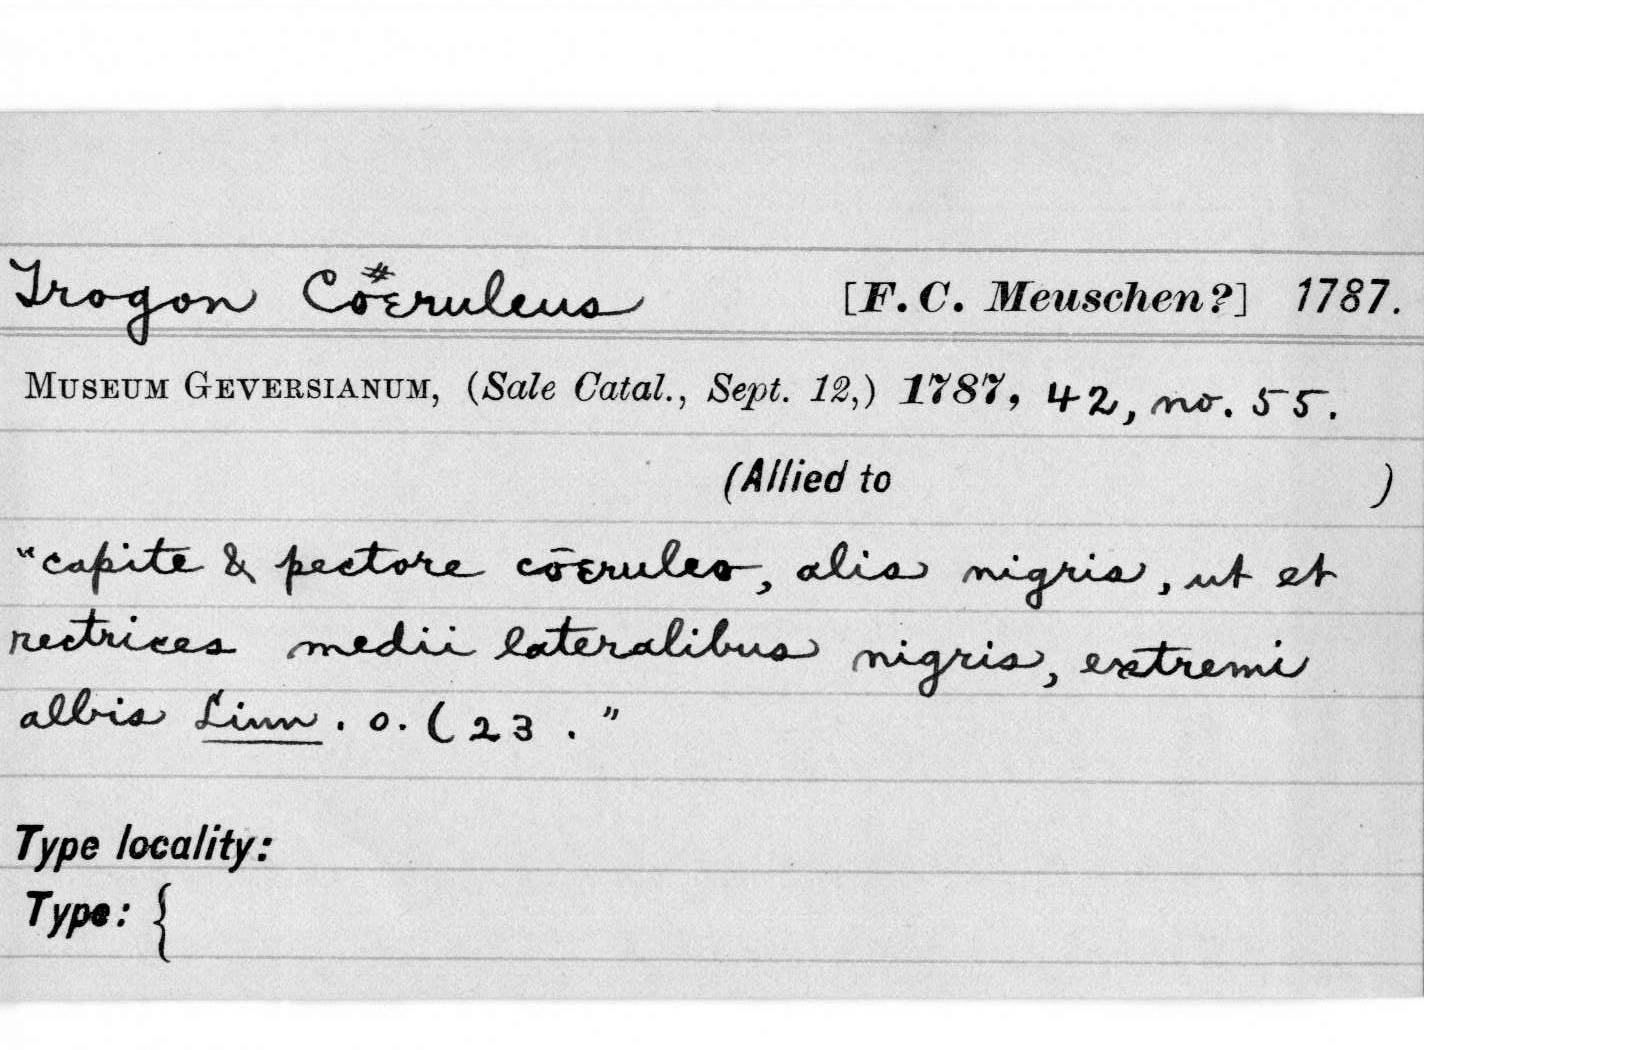 Trogon Cōeruleus [F. C. Meuschen?] 1787.
MUSEUM GEVERSIANUM, (Sale Catal., Sept. 12,) 1787, 42, no. 55.
(Allied to )
"capite & pectore cōeruleo, alis nigris, ut et
rectrices medii lateralibus nigris, extremi
albis Linn. o. ( 23 . "
Type locality:
Type: {